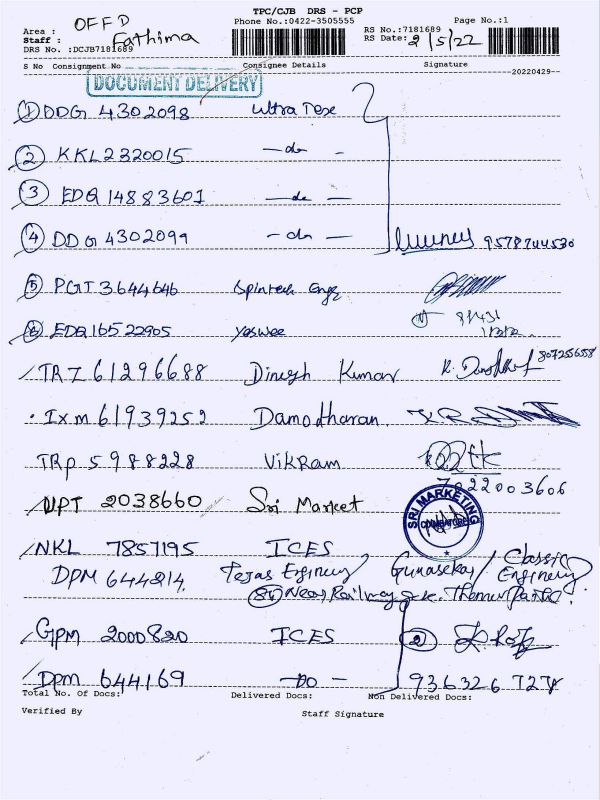 TPC/CJB DRS - PCP
Area : OFFD Phone No.:0422-3505555 Page No.:1
Staff : Fathima RS No.:7181689
DRS No. :DCJB7181689 RS Date: 2/5/22
S No Consignment No Consignee Details Signature
20220429
DOCUMENT DELIVERY
① DDG 4302098 Ultra Tex
② KKL2320015 - do -
③ EDQ 14883601 - do -
④ DDG4302099 - do - 9578744530
⑤ PGT3644646 Spintech Engg
⑥ EDQ16522905 Yeswee
TRZ 61296688 Dinesh Kumar 8072556558
Ixm 61939252 Damodharan
TRP 5988228 Vikram
7022003606
NPT 2038660 Sri Market
SRI MARKETING
COIMBATORE
NKL 7857195 ICES
DPM 644214 Tejas Enginery Gunasekar / Classic Enginery
Near Railway
GPM 2000820 ICES ②
Dpm 644169 - Do - 936326 727
Total No. Of Docs: Delivered Docs: Non Delivered Docs:
Verified By Staff Signature